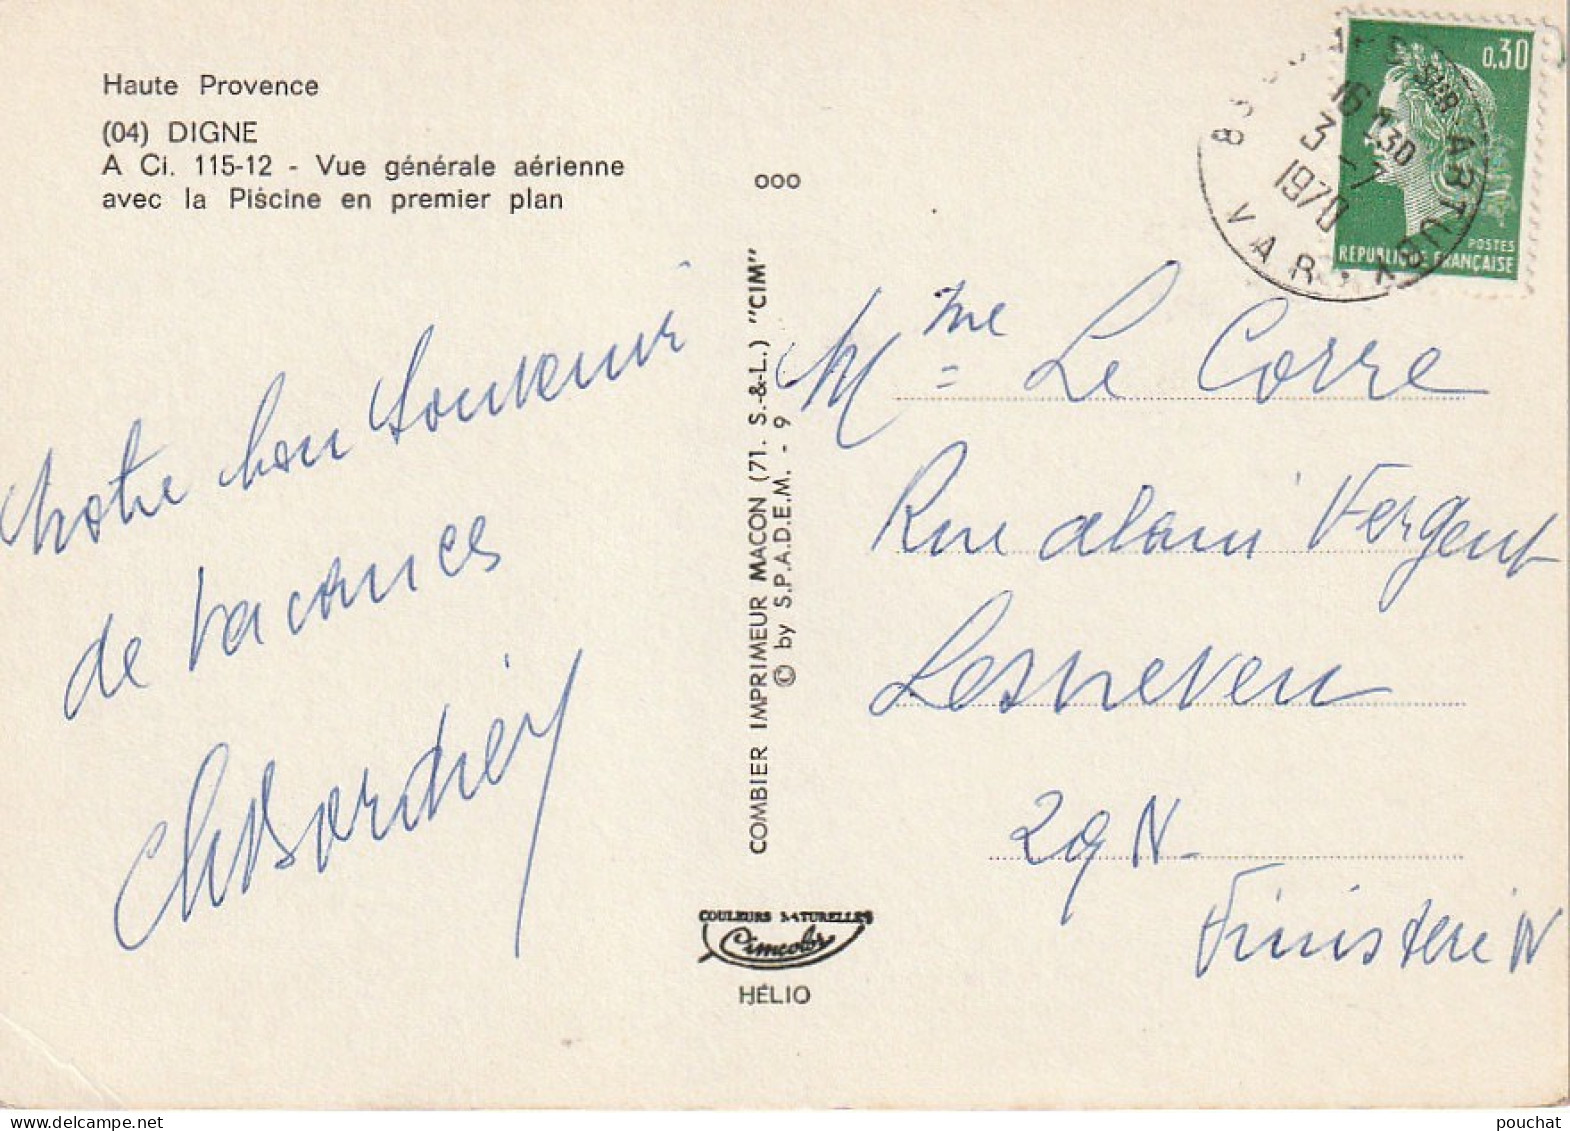 Haute Provence
(04) DIGNE
A Ci. 115-12 - Vue générale aérienne
avec la Piscine en premier plan
Notre bon souvenir
de vacances
ooo
COMBIER IMPRIMEUR MACON (71. S.-&-L.) "CIM"
© by S.P.A.D.E.M. - 9
COULEURS NATURELLES
Cimcolor
HÉLIO
0,30
POSTES
REPUBLIQUE FRANÇAISE
SUR-ARTUBY
16 H30
3 - 7
1970
VAR
Mme Le Corre
Rue alain Vergent
Lesneven
29 N
Finistere N
pouchat